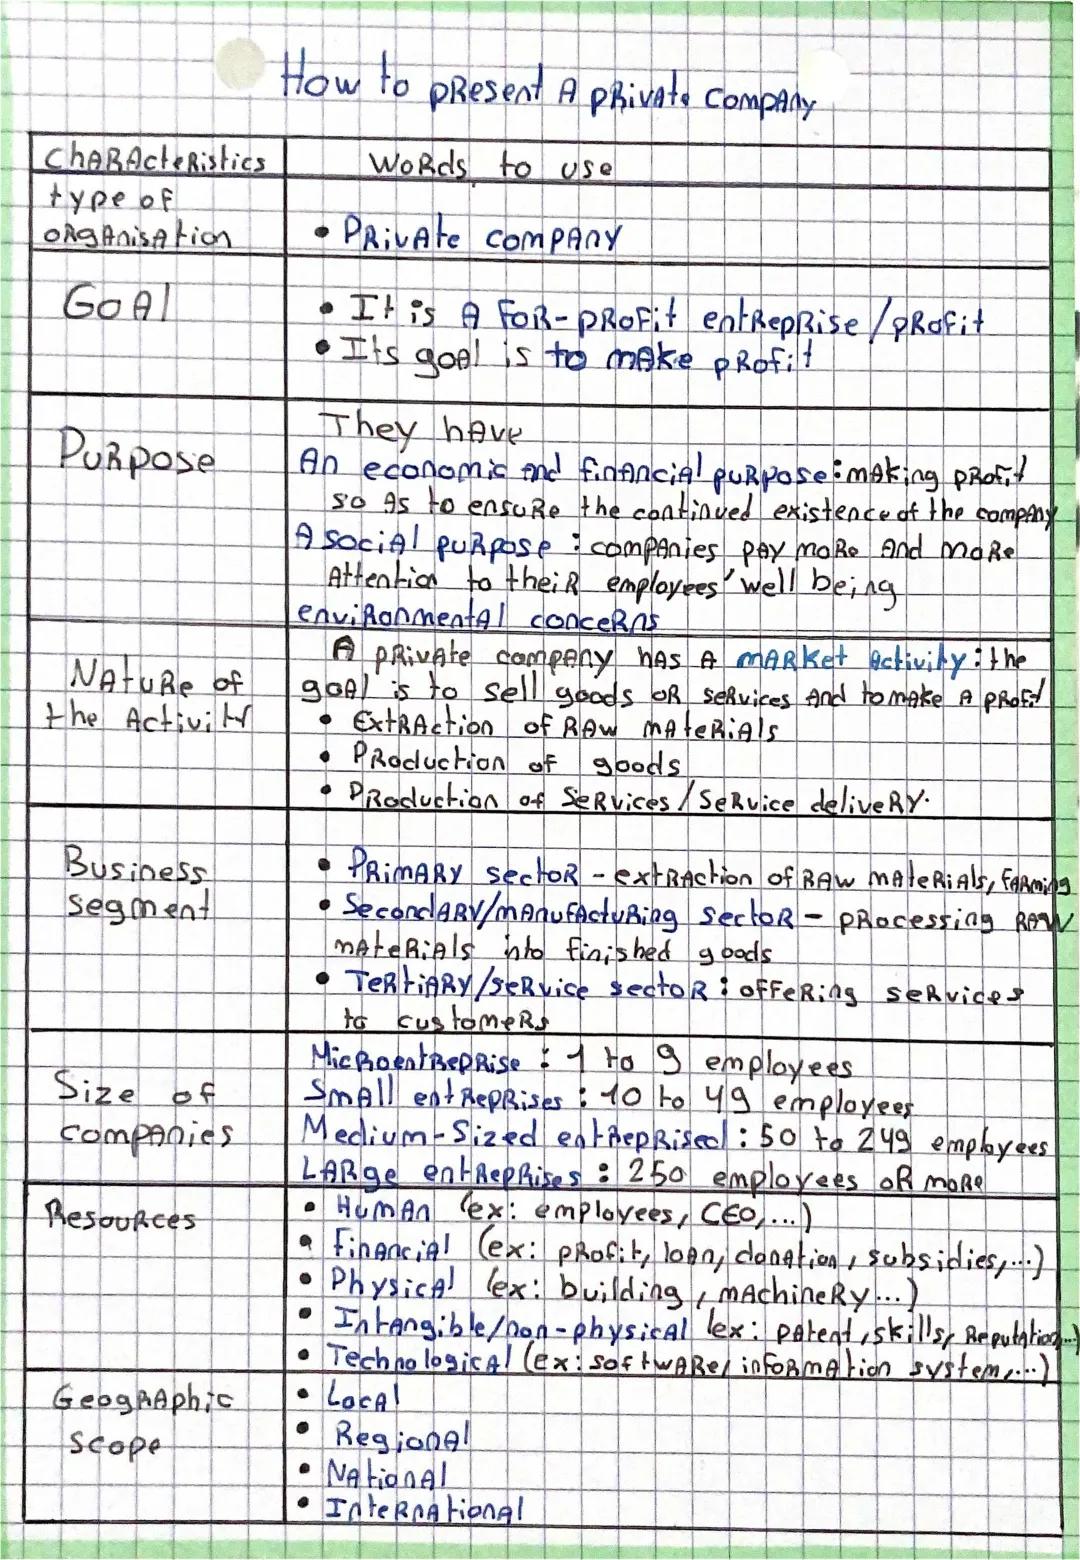 How to present A private company
characteristics
words to use
type of
organisation
• Private company
Goal
• It is A for-profit entreprise/profit
• Its goal is to make profit
Purpose
They have
An economic and financial purpose: making profit
so as to ensure the continued existence of the company
A social purpose : companies pay more and more
Attention to their employees' well being
environmental concerns
Nature of
the Activity
A private company has a market activity: the
goal is to sell goods or services and to make a profit
• Extraction of raw materials
• Production of goods
• Production of Services/Service delivery.
Business
segment
• Primary sector - extraction of raw materials, farming
• Secondary/manufacturing sector - processing raw
materials into finished goods
• Tertiary/service sector : offering services
to customers
Size of
companies
Microentreprise : 1 to 9 employees
Small entreprises : 10 to 49 employees
Medium-Sized entreprised : 50 to 249 employees
Large entreprises : 250 employees or more
Resources
• Human (ex: employees, CEO,...)
• financial (ex: profit, loan, donation, subsidies,...)
• Physical (ex: building, machinery...)
• Intangible/non-physical (ex: patent, skills, Reputation...)
• Technological (ex: software, information system,...)
Geographic
scope
• Local
• Regional
• National
• International